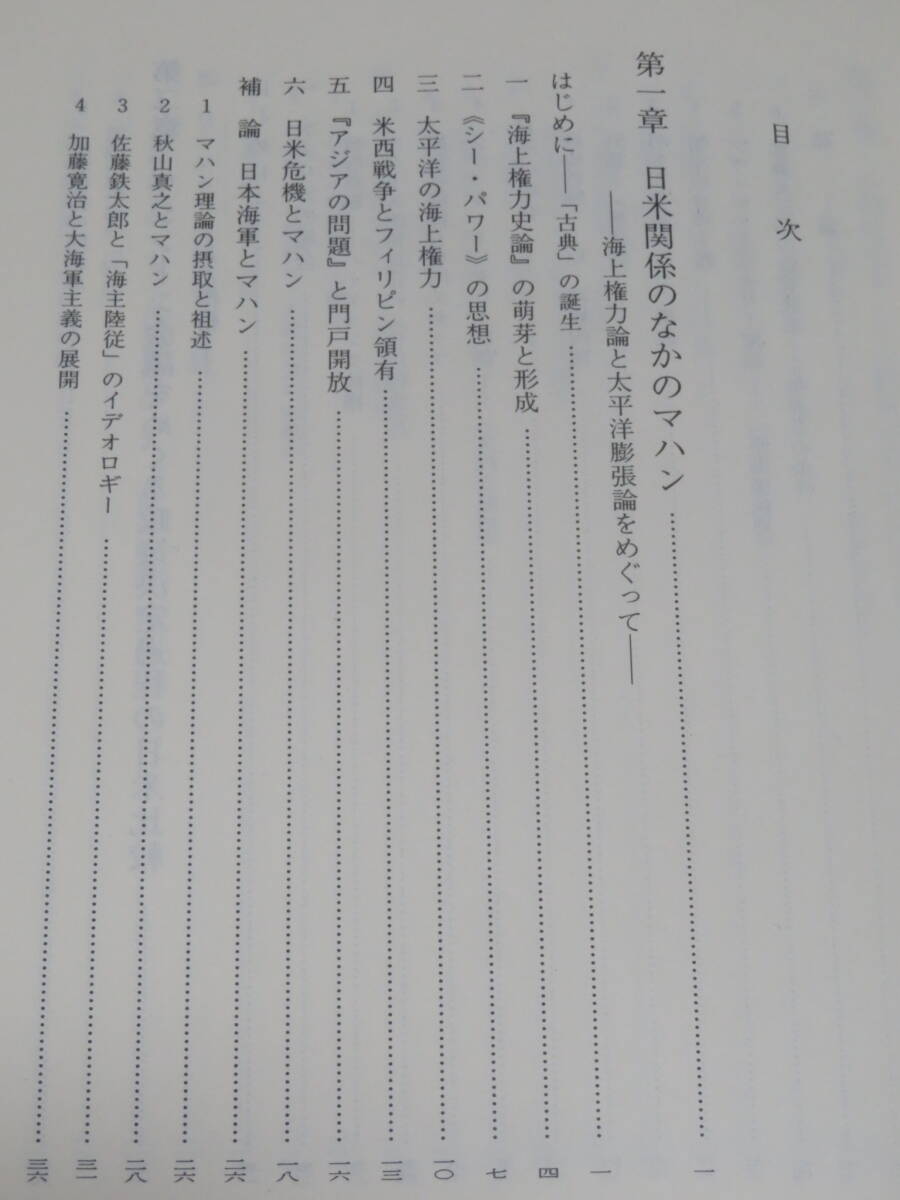 目　次
第一章　日米関係のなかのマハン……………一
――海上権力論と太平洋膨張論をめぐって――
はじめに――「古典」の誕生……………一
一　『海上権力史論』の萌芽と形成……………四
二　《シー・パワー》の思想……………七
三　太平洋の海上権力……………一〇
四　米西戦争とフィリピン領有……………一三
五　『アジアの問題』と門戸開放……………一六
六　日米危機とマハン……………一八
補　論　日本海軍とマハン……………二六
1　マハン理論の摂取と祖述……………二六
2　秋山真之とマハン……………二八
3　佐藤鉄太郎と「海主陸従」のイデオロギー……………三一
4　加藤寛治と大海軍主義の展開……………三六